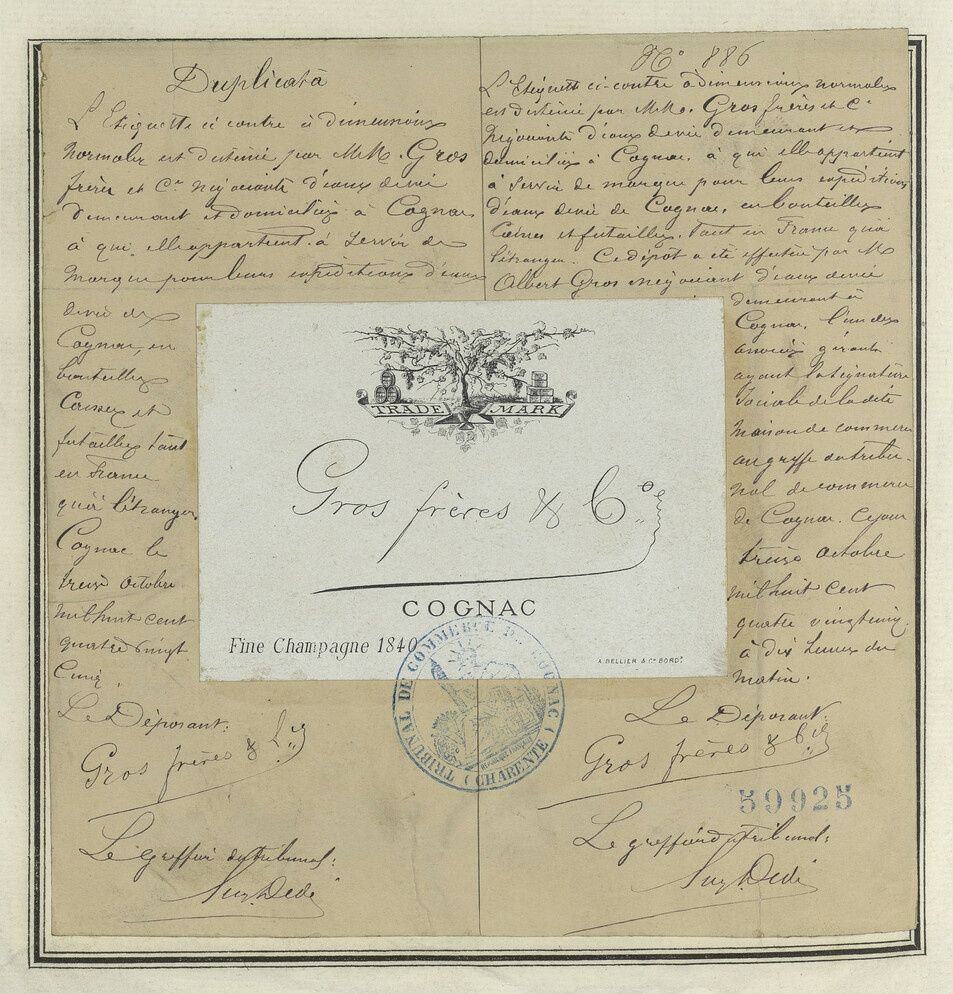 Duplicata
L'Etiquette ci contre à dimensions
normales est destinée par M.M. Gros
frères et Cie négociants d'eaux devie
demeurant et domiciliés à Cognac
à qui elle appartient à servir de
marque pour leurs expéditions d'eaux
devie de
Cognac, en
bouteilles
Caisses et
futailles tant
en France
qu'à l'étranger.
Cognac le
treize Octobre
mil huit cent
quatre vingt
Cinq.
Le Déposant:
Gros frères & Cie
Le Greffier du tribunal:
No 886
L'Etiquette ci-contre à dimensions normales
est destinée par M.M. Gros frères et Cie
Négociants d'eaux devie demeurant et
domiciliés à Cognac, à qui elle appartient
à servir de marque pour leurs expéditions
d'eaux devie de Cognac, en bouteilles
Caisses et futailles, tant en France qu'à
l'étranger. Ce dépôt a été effectué par M
Albert Gros négociant d'eaux devie
demeurant à
Cognac, l'un des
associés gérants
ayant la signature
Sociale de la dite
Maison de commerce
au greffe du tribu-
nal de commerce
de Cognac, ce jour
treize Octobre
mil huit cent
quatre vingt cinq
à dix heures du
matin.
Le Déposant:
Gros frères & Cie
59925
Le greffier du tribunal:
TRADE MARK
Gros frères & Co
COGNAC
Fine Champagne 1840
A. BELLIER & Co BORDx
TRIBUNAL DE COMMERCE DE COGNAC (CHARENTE)
RÉPUBLIQUE FRANÇAISE